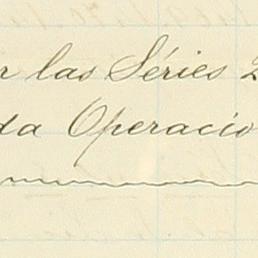 r las Séries
da Operacio